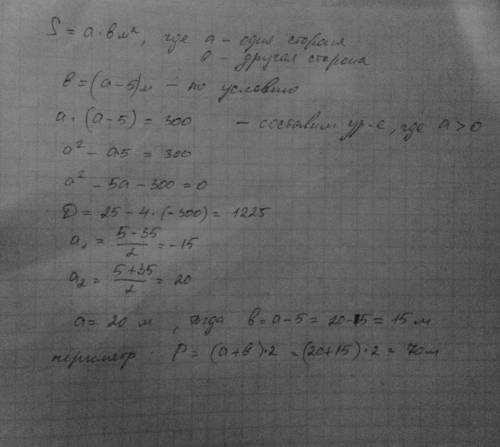 S = a · в м², где a – одна сторона
в – другая сторона
в = (a-5)м – по условию
a · (a-5) = 300 – составим ур-е, где a > 0
a² - a5 = 300
a² - 5a - 300 = 0
D = 25 - 4·(-300) = 1225
a₁ = (5-35)/2 = -15
a₂ = (5+35)/2 = 20
a = 20 м, тогда в = a - 5 = 20 - 5 = 15 м
периметр P = (a+в)·2 = (20+15)·2 = 70м